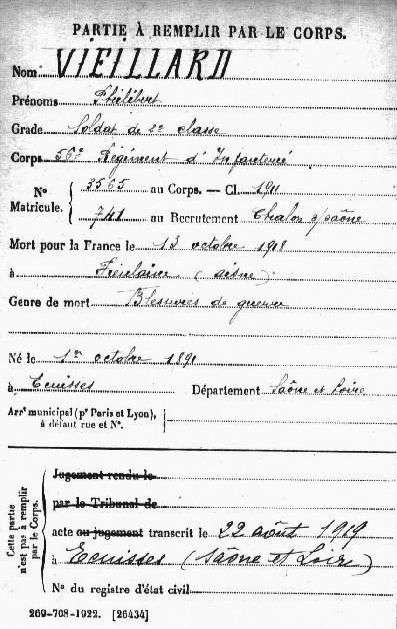 PARTIE À REMPLIR PAR LE CORPS.
Nom VIEILLARD
Prénoms Philibert
Grade Soldat de 2e classe
Corps 56e Régiment d'Infanterie
N° Matricule. { 3565 au Corps. — Cl. 1911
741 au Recrutement Chalon s/saône
Mort pour la France le 13 octobre 1918
à (aisne)
Genre de mort Blessures de guerre
Né le 1er octobre 1891
à Ecuisses Département Saône et Loire
Arrt municipal (pr Paris et Lyon), à défaut rue et N°.
Cette partie n'est pas à remplir par le Corps.
Jugement rendu le
par le Tribunal de
acte ou jugement transcrit le 22 août 1919
à Ecuisses (Saône et Loire)
N° du registre d'état civil
269-708-1922. [26434]